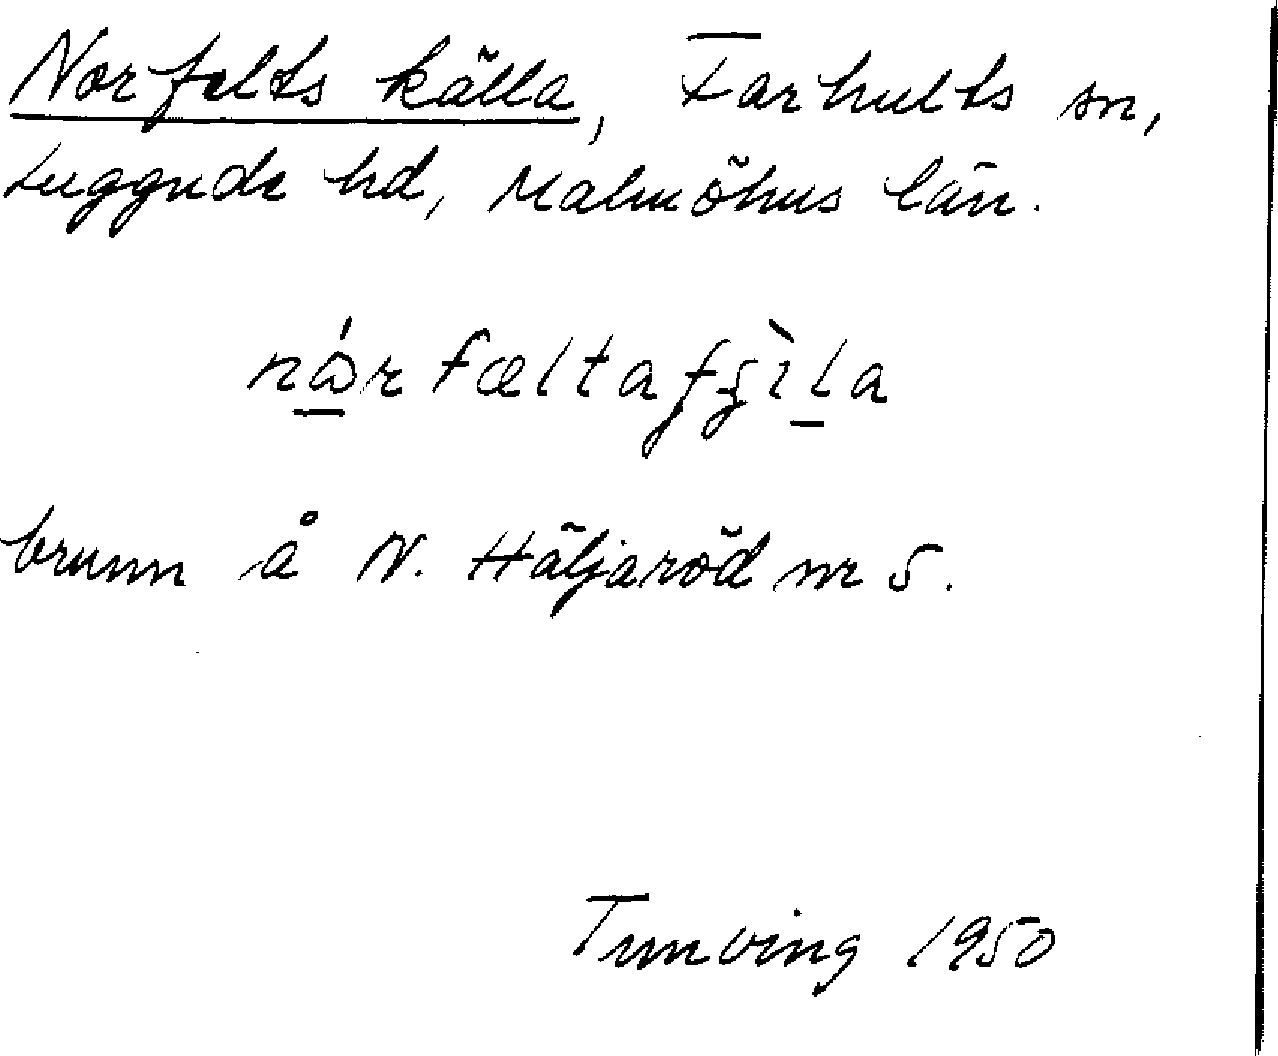 Norfelts källa, Farhults sn,
Luggude hd, Malmöhus län.
brunn å N. Häljaröd nr 5.
Tunving 1950